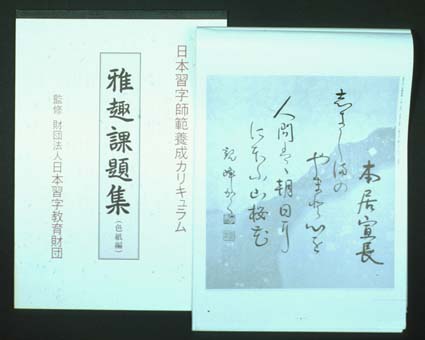 日本習字師範養成カリキュラム
雅趣課題集(色紙編)
監修 財団法人日本習字教育財団
本居宣長
志きしまの
やまと心を
人問はゝ朝日に
にほふ山桜花